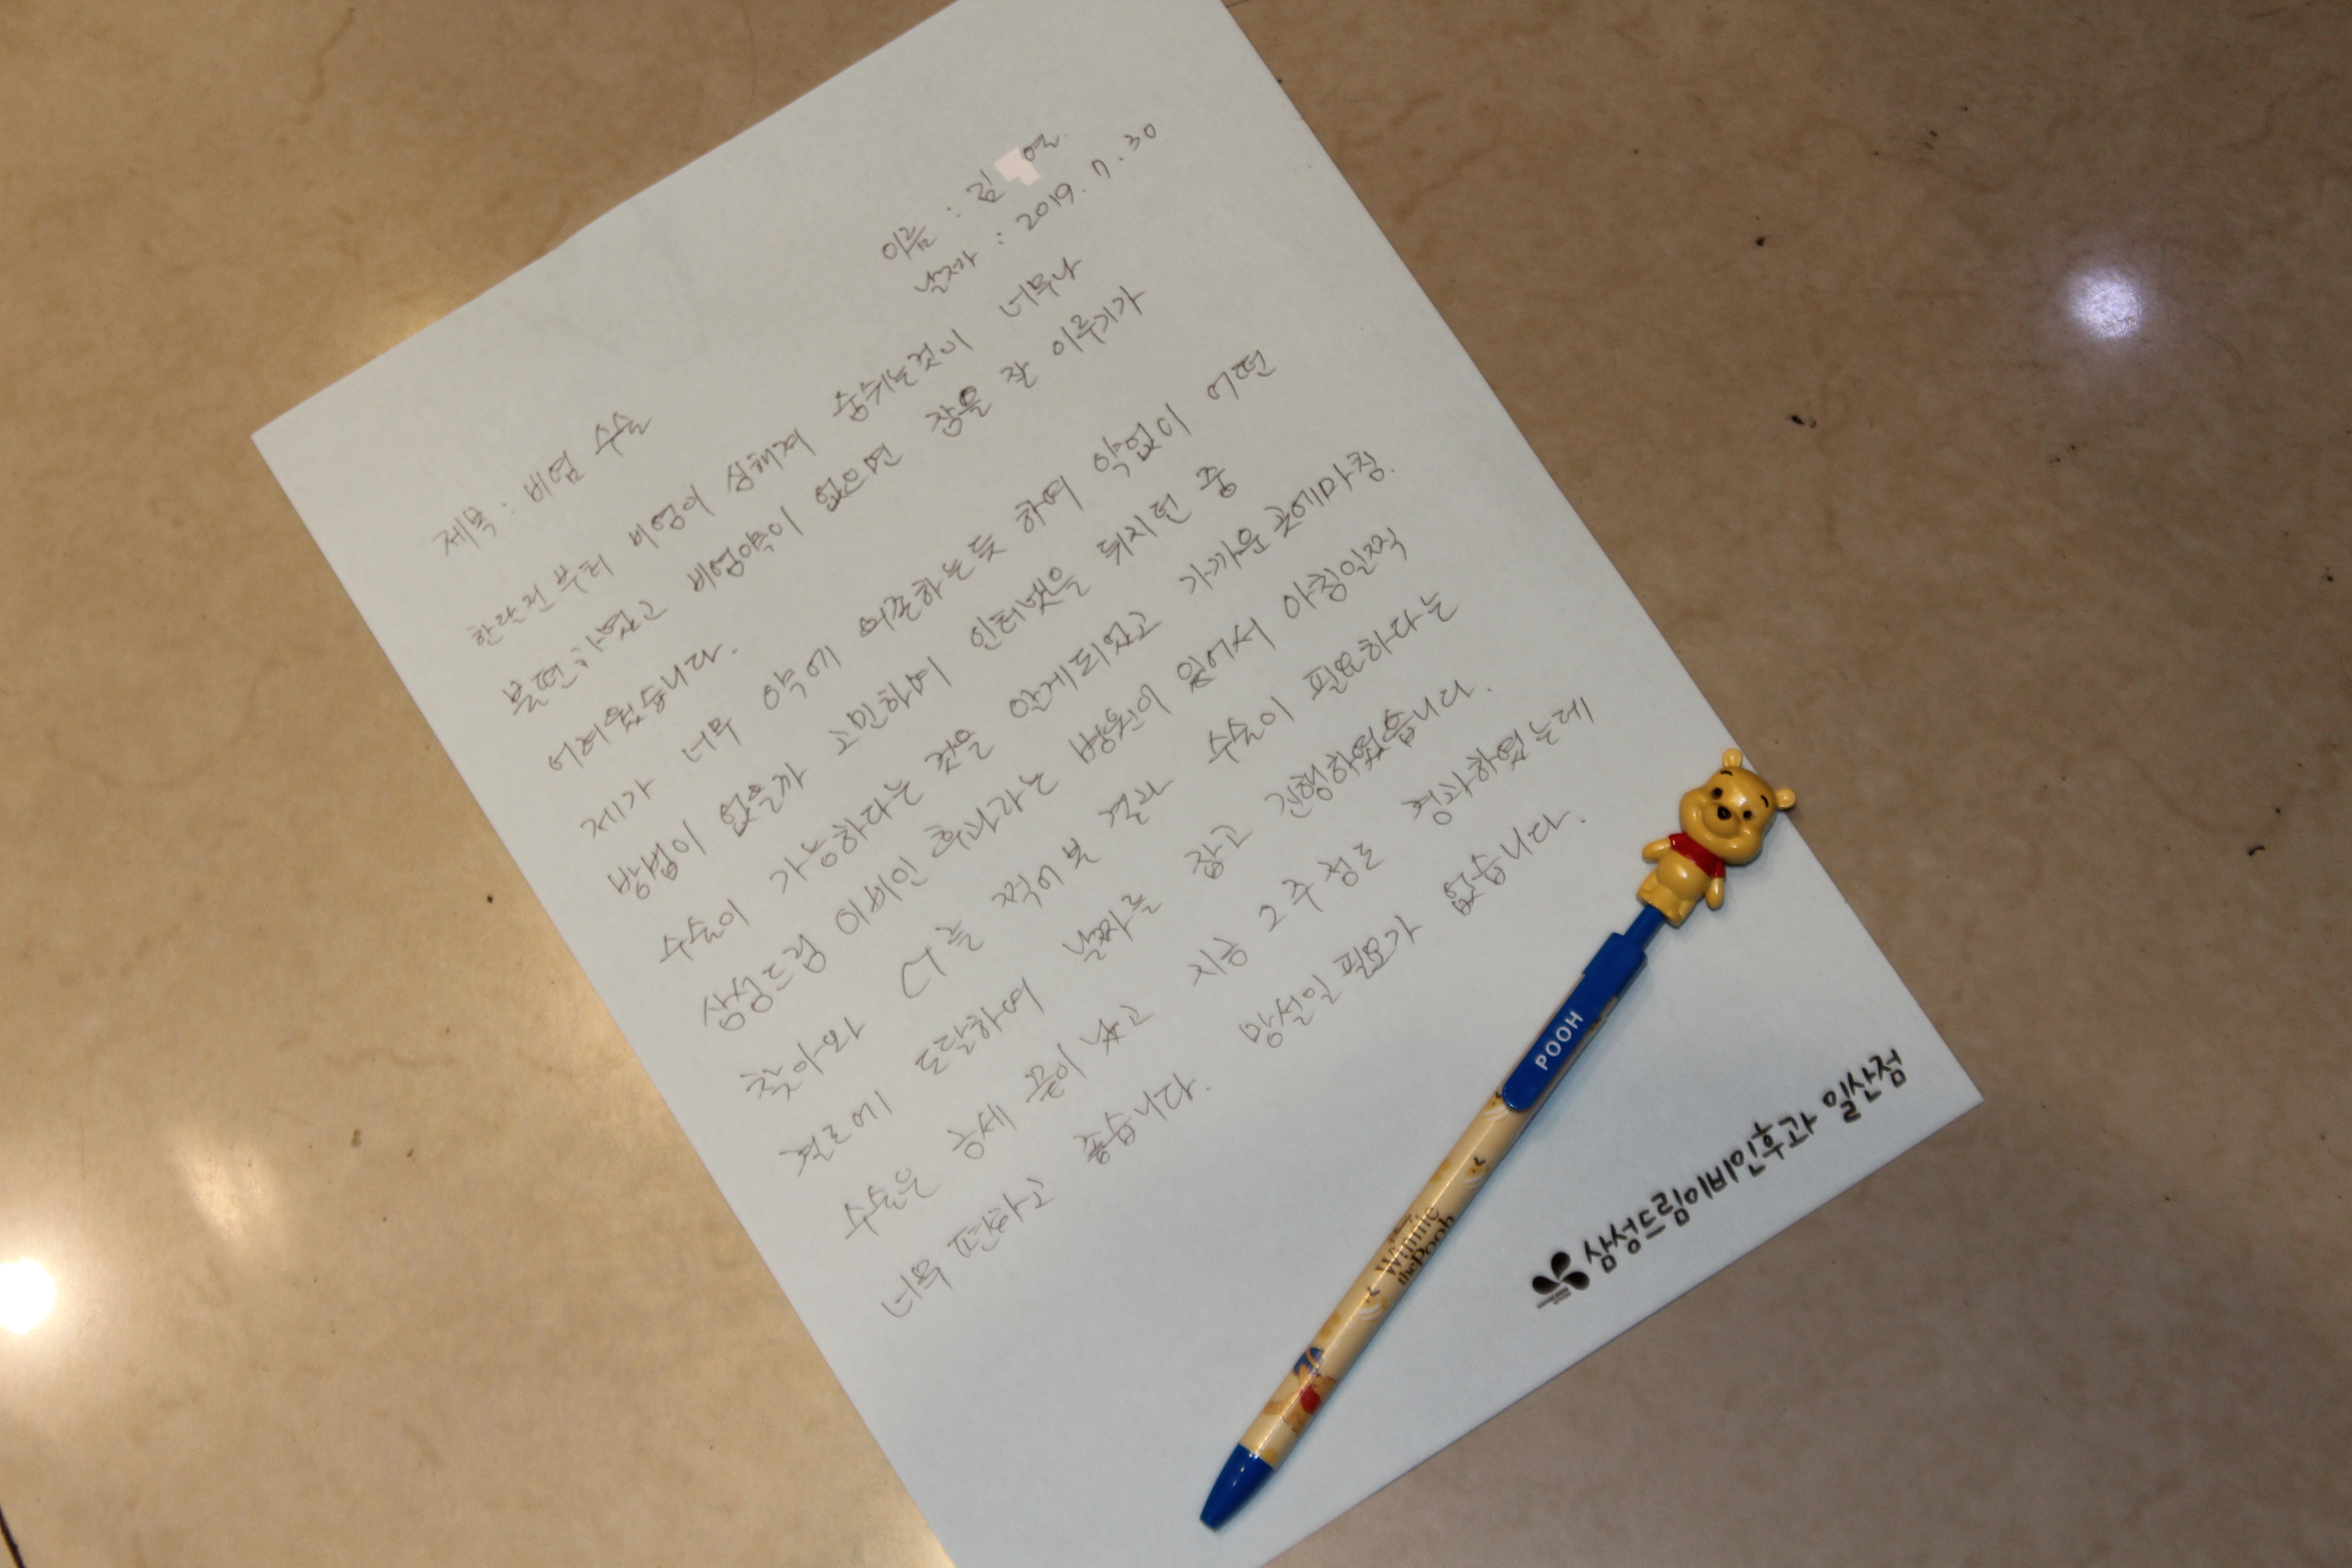 이름 : 김 열
날짜 : 2019. 7. 30
제목 : 비염 수술
한달전 부터 비염이 심해져 숨쉬는것이 너무나
불편하였고 비염약이 없으면 잠을 잘 이루기가
어려웠습니다.
제가 너무 약에 의존하는듯 하여 약없이 어떤
방법이 없을까 고민하여 인터넷을 뒤지던 중
수술이 가능하다는 것을 알게되었고 가까운 곳에마침.
삼성드림 이비인 후과라는 병원이 있어서 아침일찍
찾아와 CT를 찍어본 결과 수술이 필요하다는
결론에 도달하여 날짜를 잡고 진행하였습니다.
수술은 금세 끝이 났고 지금 2주 정도 경과하였는데
너무 편하고 좋습니다. 망설일 필요가 없습니다.
POOH
Winnie
the Pooh
삼성드림이비인후과 일산점